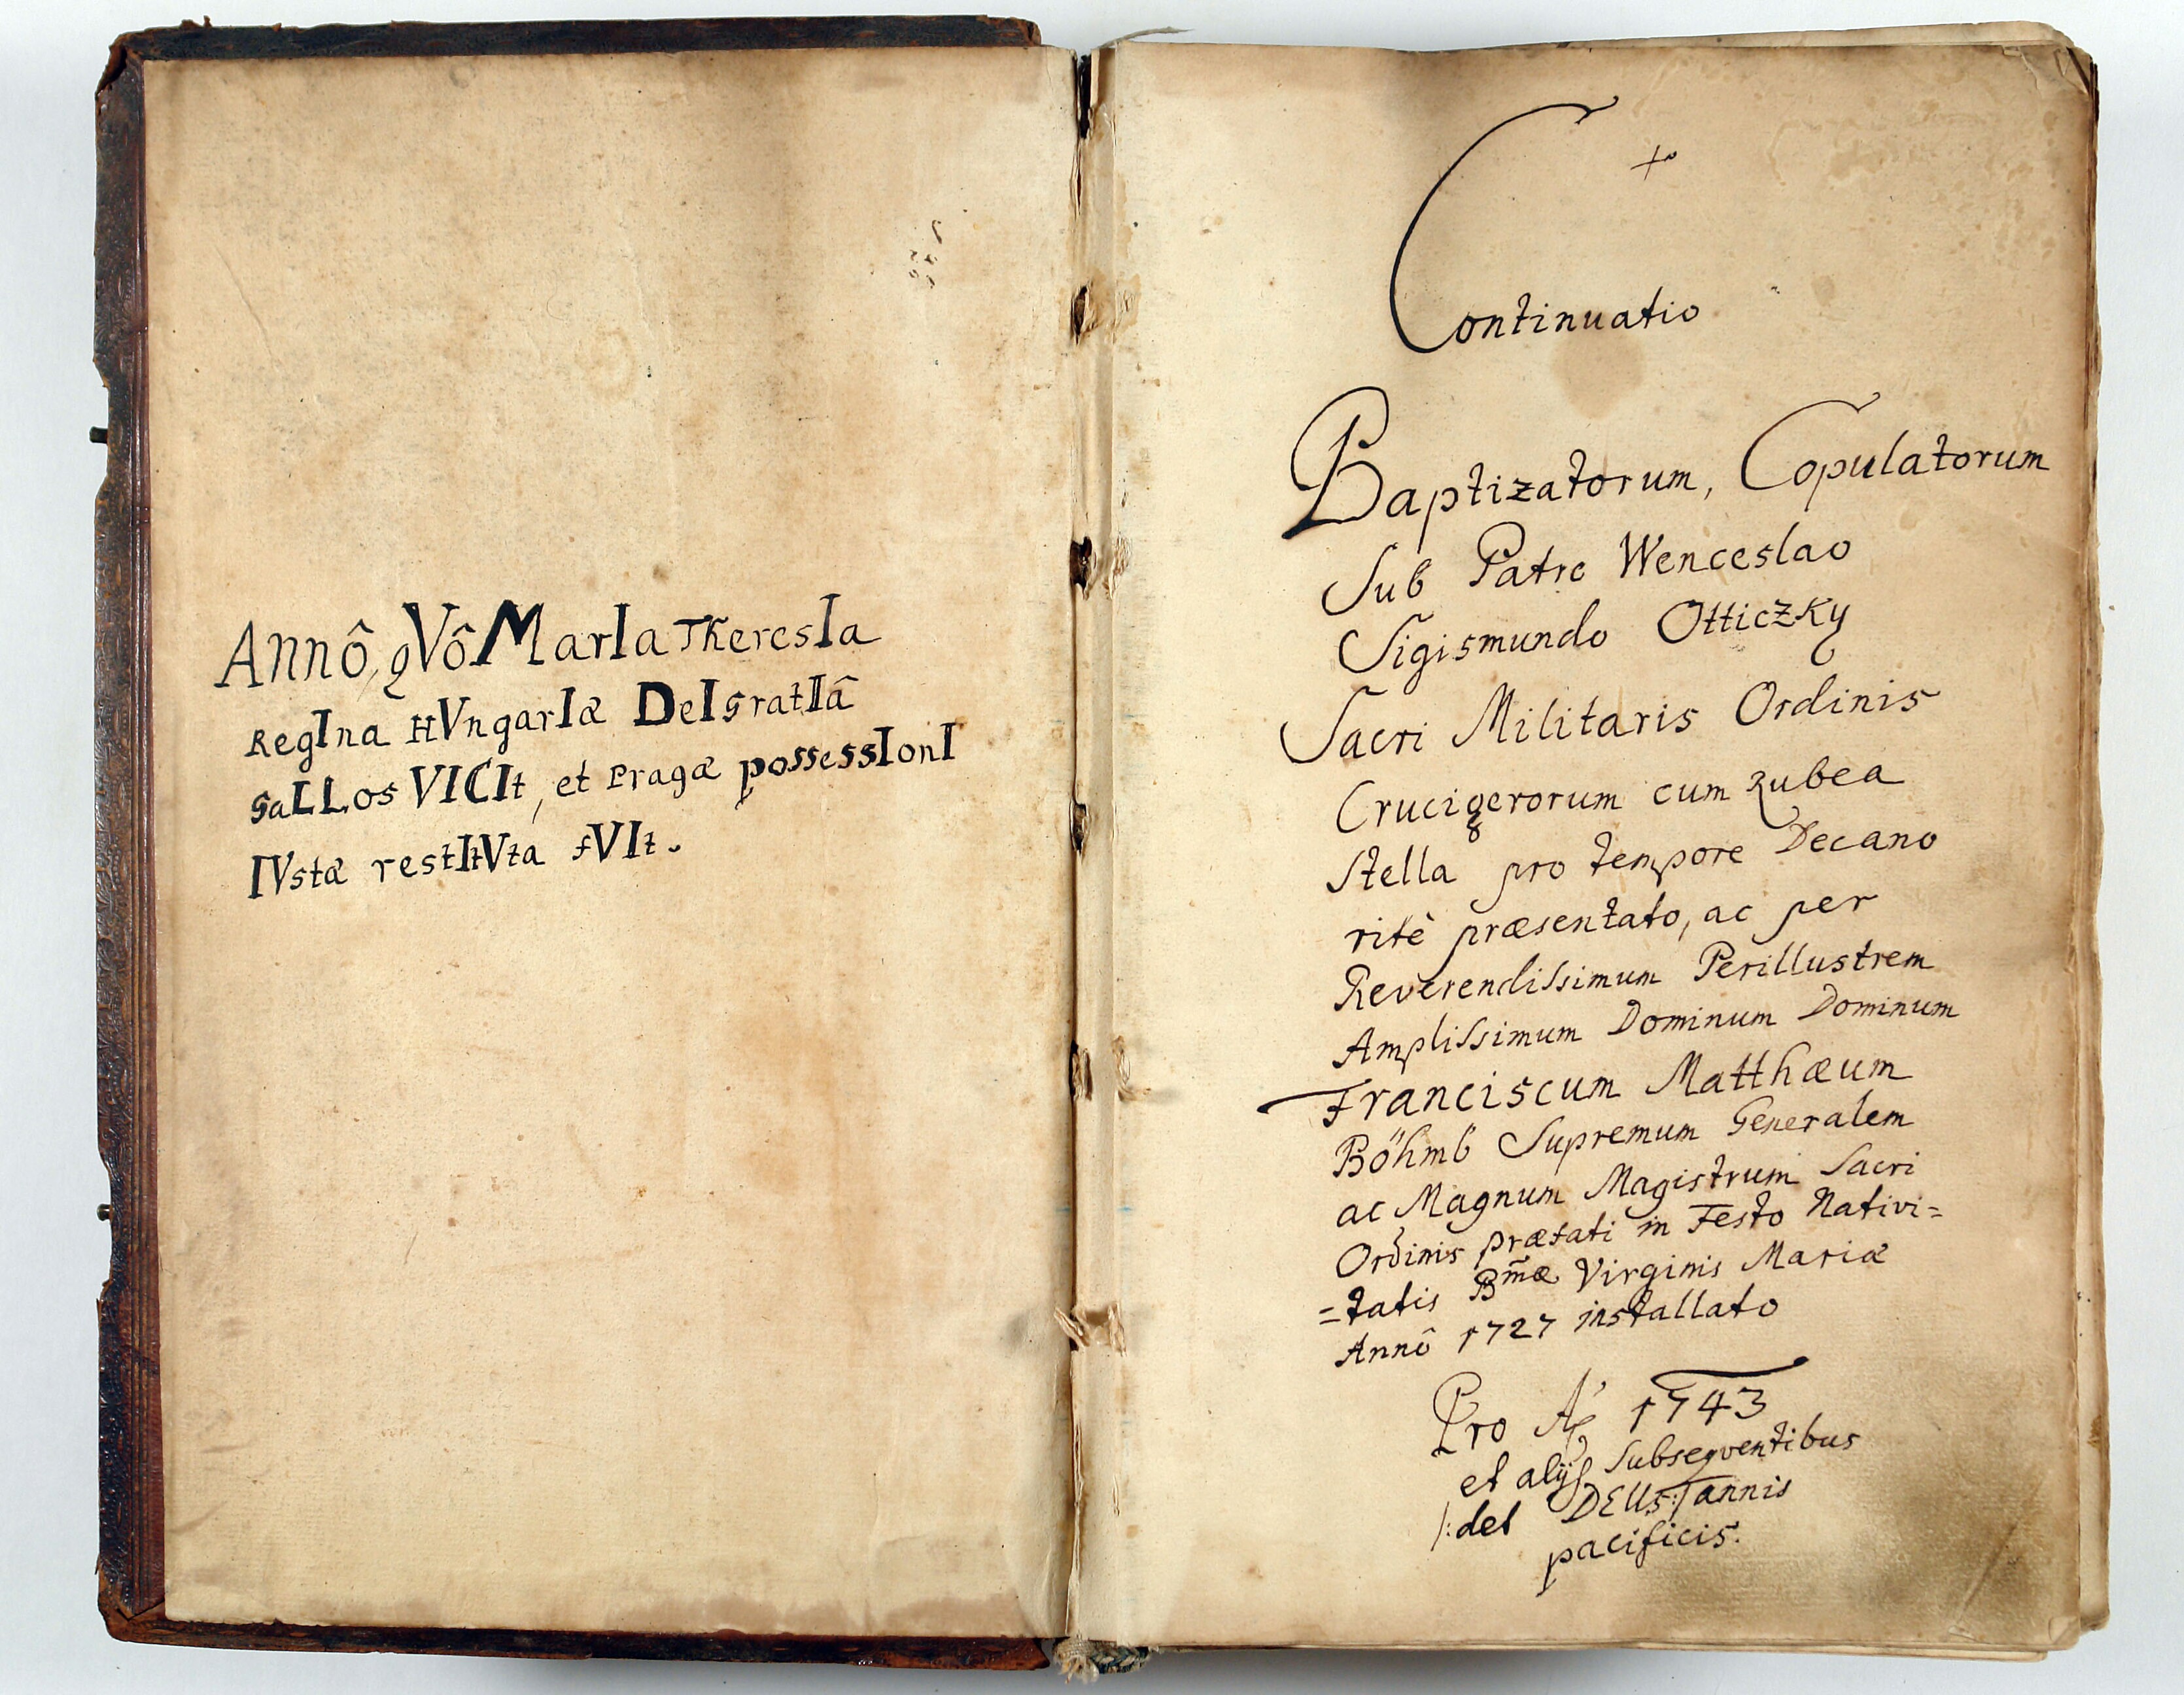 Annô, qVô MarIa TheresIa
RegIna HVngarIæ DeI gratIâ
gaLLos VICIt, et Pragæ possessIonI
IVstæ restItVta fVIt.
Continuatio
Baptizatorum, Copulatorum
Sub Patre Wenceslao
Sigismundo Otticzky
Sacri Militaris Ordinis
Crucigerorum cum Rubea
Stella pro tempore Decano
ritè præsentato, ac per
Reverendissimum Perillustrem
Amplissimum Dominum Dominum
Franciscum Matthæum
Böhmb Supremum Generalem
ac Magnum Magistrum Sacri
Ordinis præfati in Festo Nativi=
=tatis Bm̃æ Virginis Mariæ
Annô 1727 installato
Pro Aõ 1743
et alijs Subseqventibus
/:det DEUs:/ annis
pacificis.